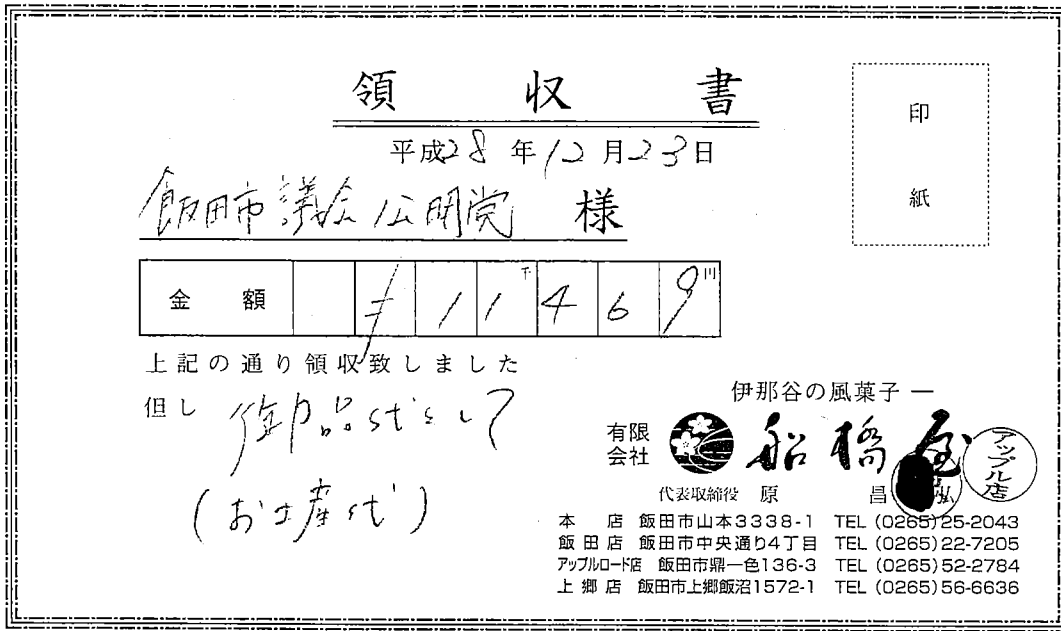 領収書
印紙
平成28年12月23日
飯田市議会公明党 様
金額 ¥11千469円
上記の通り領収致しました
但し 御品代として
(お土産代)
伊那谷の風菓子 ―
有限会社 船橋屋
アップル店
代表取締役 原 昌弘
本店 飯田市山本3338-1 TEL (0265)25-2043
飯田店 飯田市中央通り4丁目 TEL (0265)22-7205
アップルロード店 飯田市鼎一色136-3 TEL (0265)52-2784
上郷店 飯田市上郷飯沼1572-1 TEL (0265)56-6636